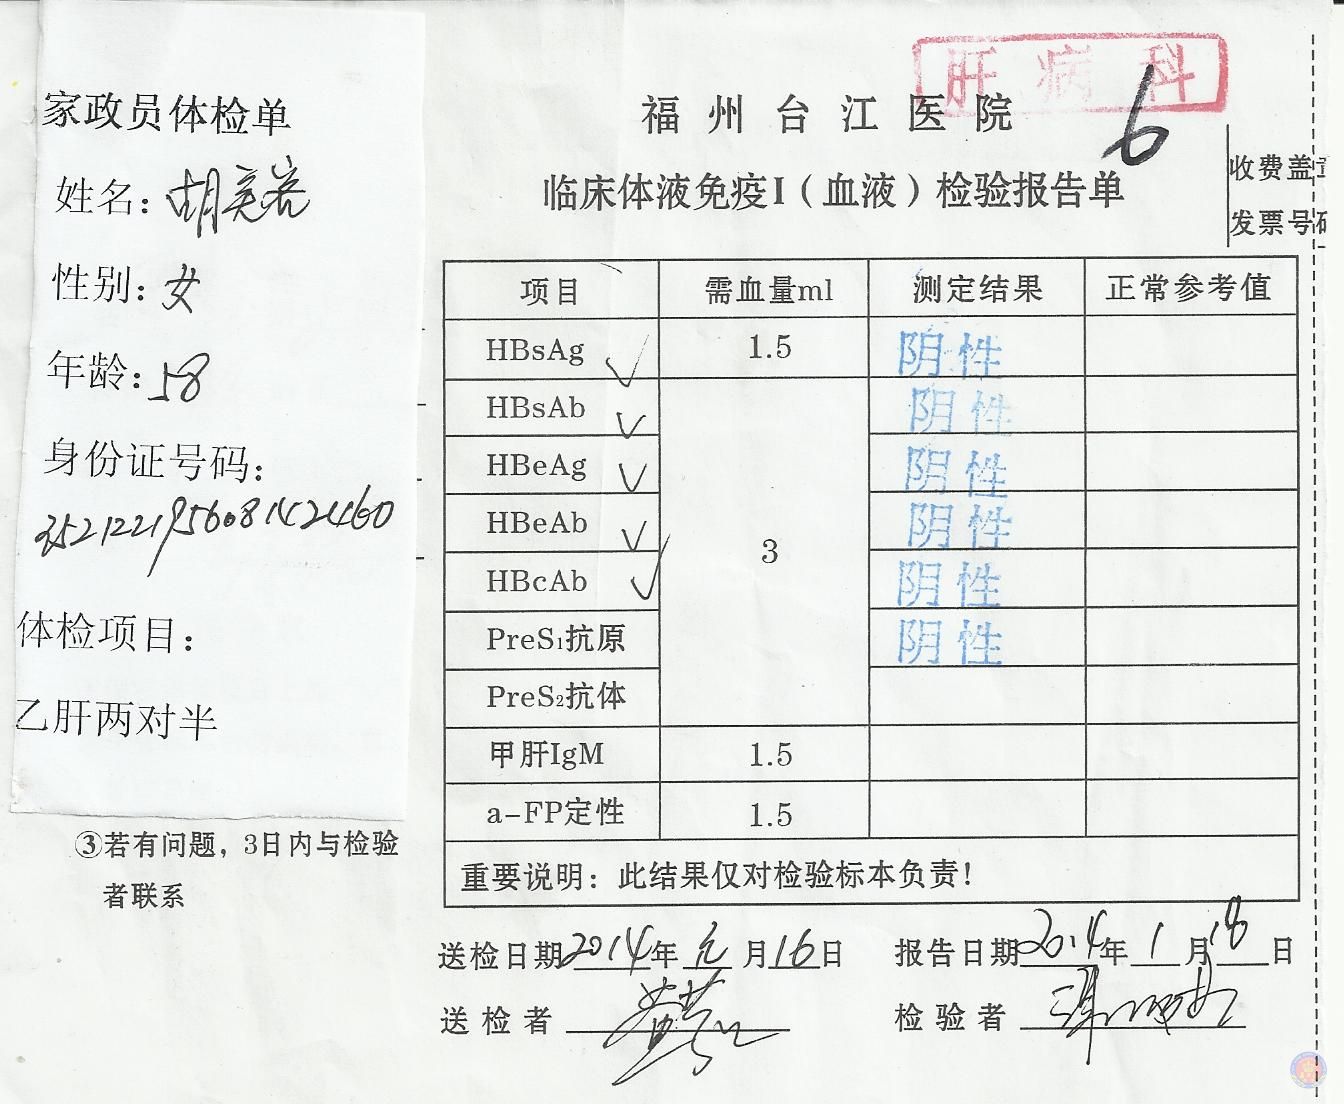 肝病科
6
福州台江医院
临床体液免疫I(血液)检验报告单
收费盖
发票号
家政员体检单
姓名:胡美
性别:女
年龄:58
身份证号码:
体检项目:
乙肝两对半
③若有问题,3日内与检验
者联系
项目 需血量ml 测定结果 正常参考值
HBsAg ✓ 1.5 阴性
HBsAb ✓ 阴性
HBeAg ✓ 阴性
HBeAb ✓ 3 阴性
HBcAb ✓ 阴性
PreS₁抗原 阴性
PreS₂抗体
甲肝IgM 1.5
a-FP定性 1.5
重要说明:此结果仅对检验标本负责!
送检日期2014年元月16日 报告日期2014年1月18日
送检者 检验者